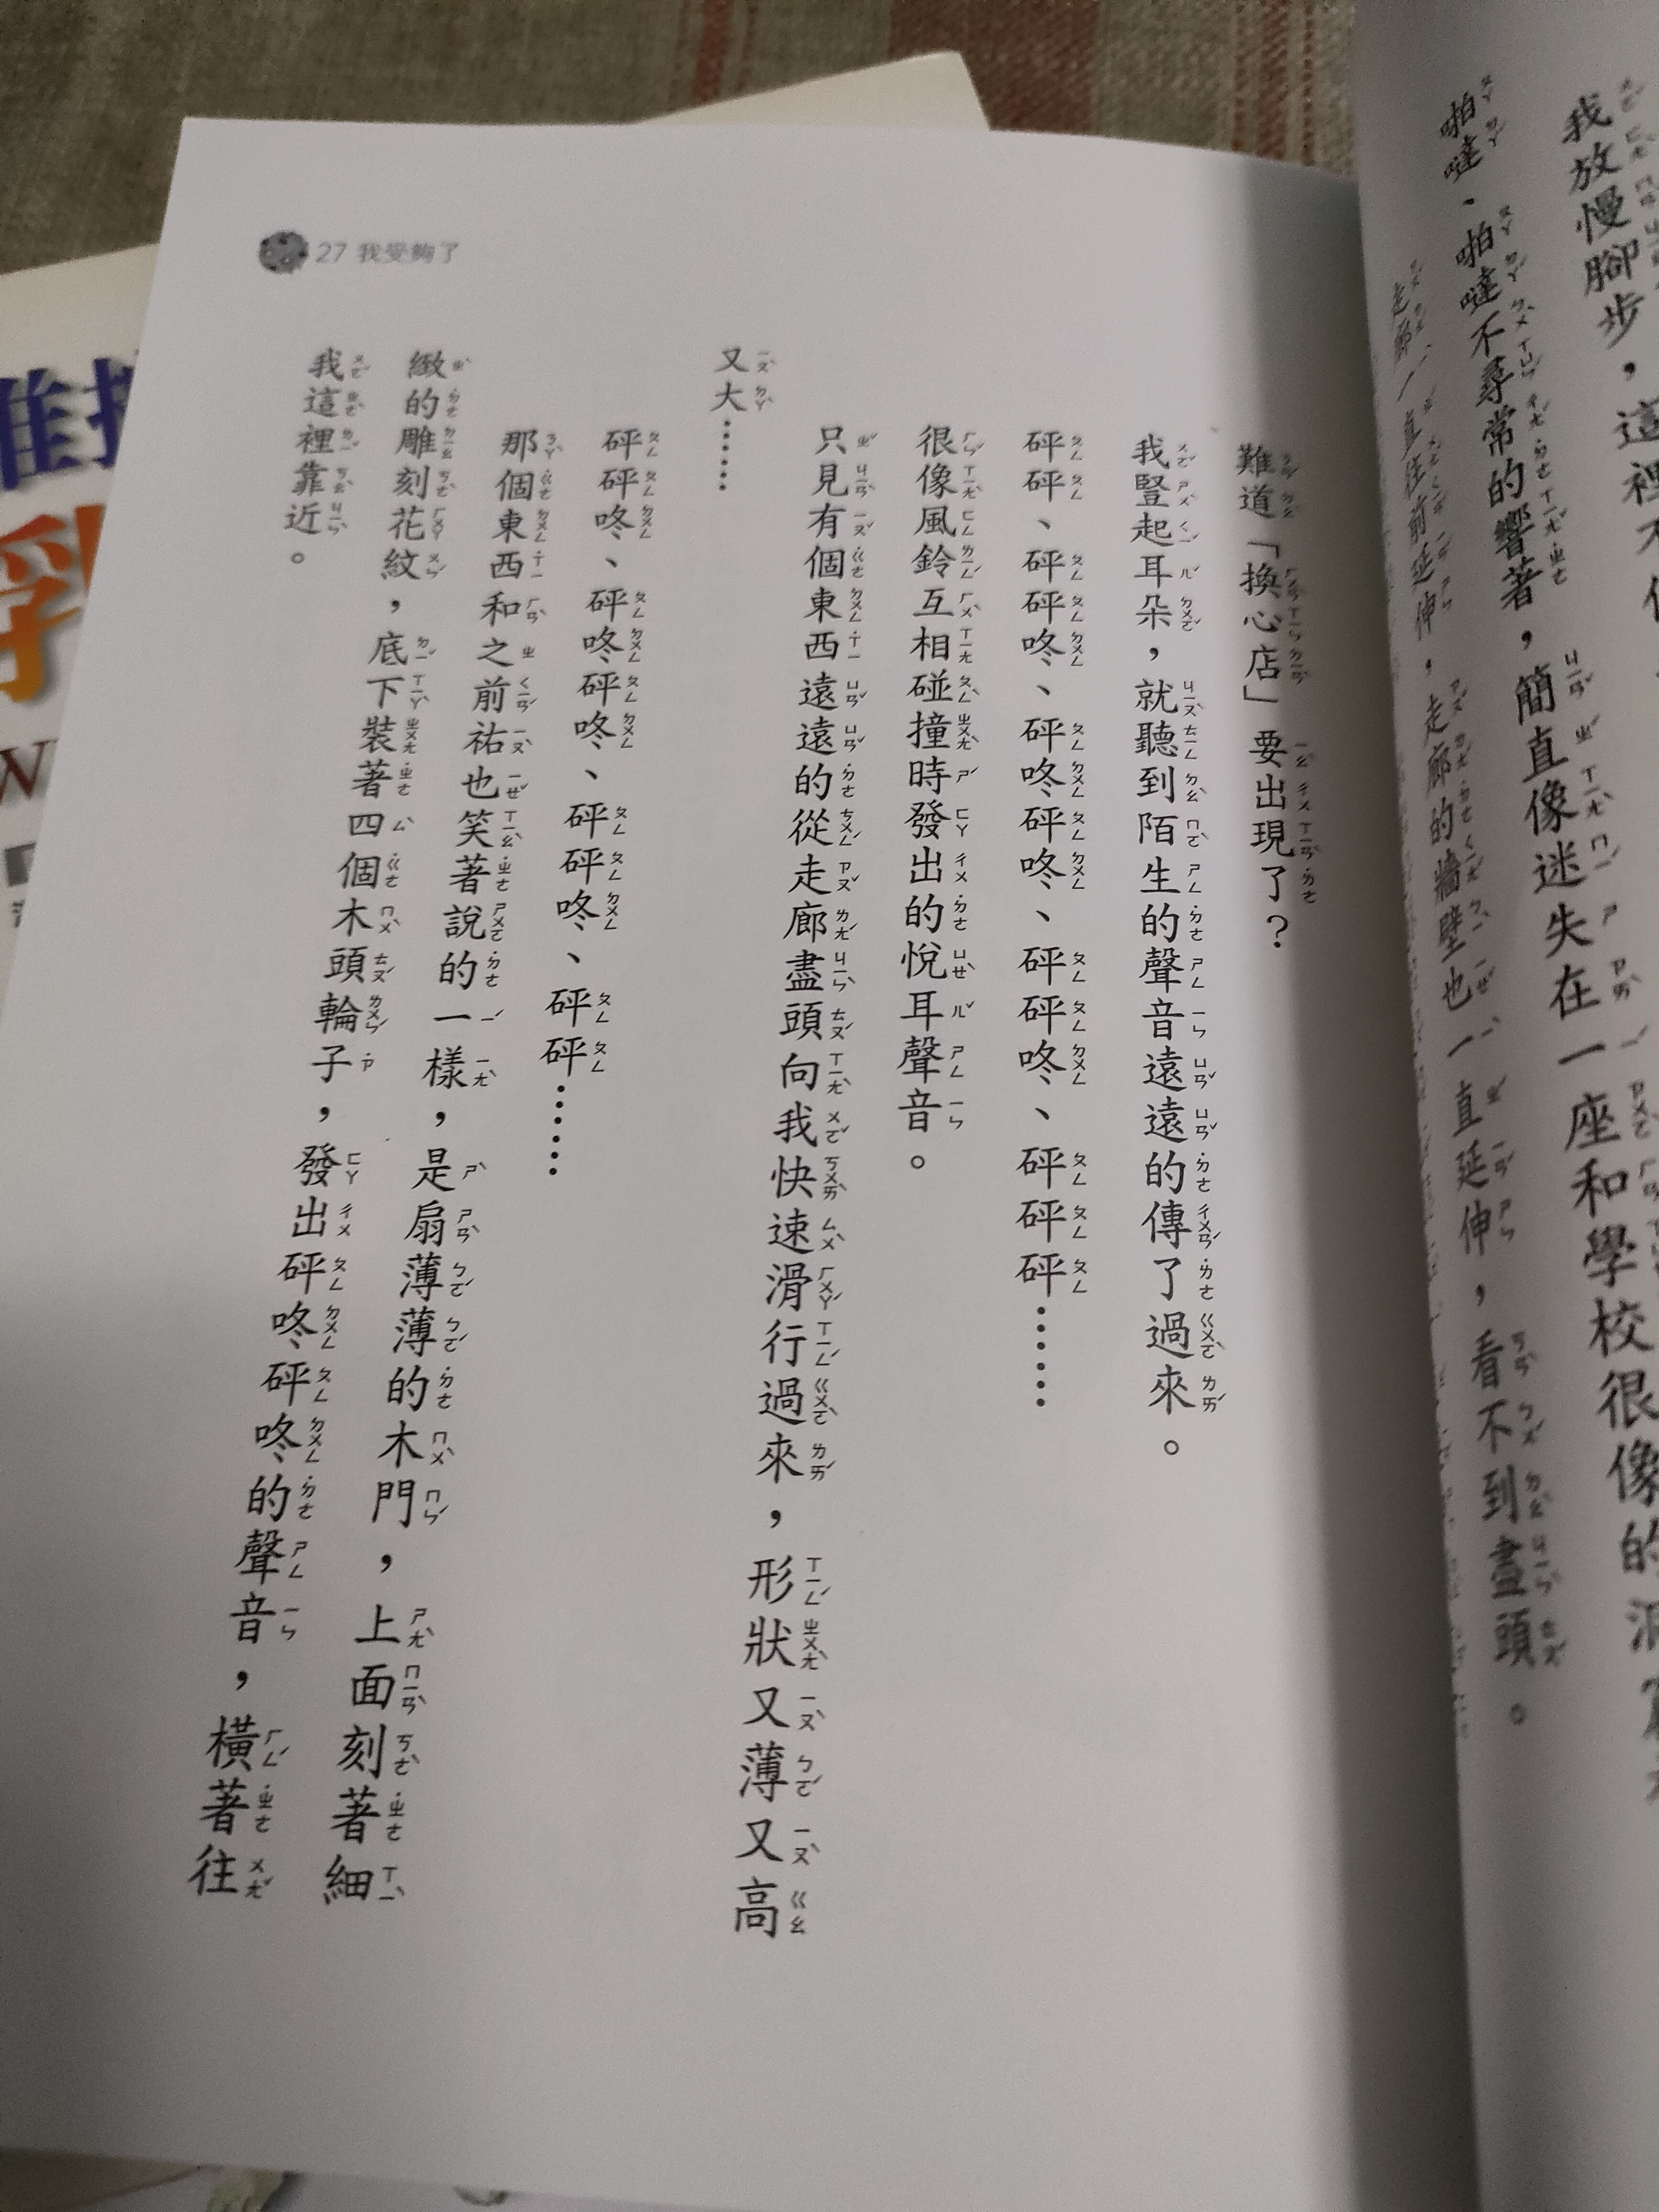 我放慢腳步，這裡不
啪噠、啪噠不尋常的響著，簡直像迷失在一座和學校很像的
走廊一直往前延伸，走廊的牆壁也一直延伸，看不到盡頭。
27 我受夠了
難道「換心店」要出現了？
我豎起耳朵，就聽到陌生的聲音遠遠的傳了過來。
砰砰、砰砰咚、砰咚砰咚、砰砰咚、砰砰砰……
很像風鈴互相碰撞時發出的悅耳聲音。
只見有個東西遠遠的從走廊盡頭向我快速滑行過來，形狀又薄又高
又大……
砰砰咚、砰咚砰咚、砰砰咚、砰砰……
那個東西和之前祐也笑著說的一樣，是扇薄薄的木門，上面刻著細
緻的雕刻花紋，底下裝著四個木頭輪子，發出砰咚砰咚的聲音，橫著往
我這裡靠近。